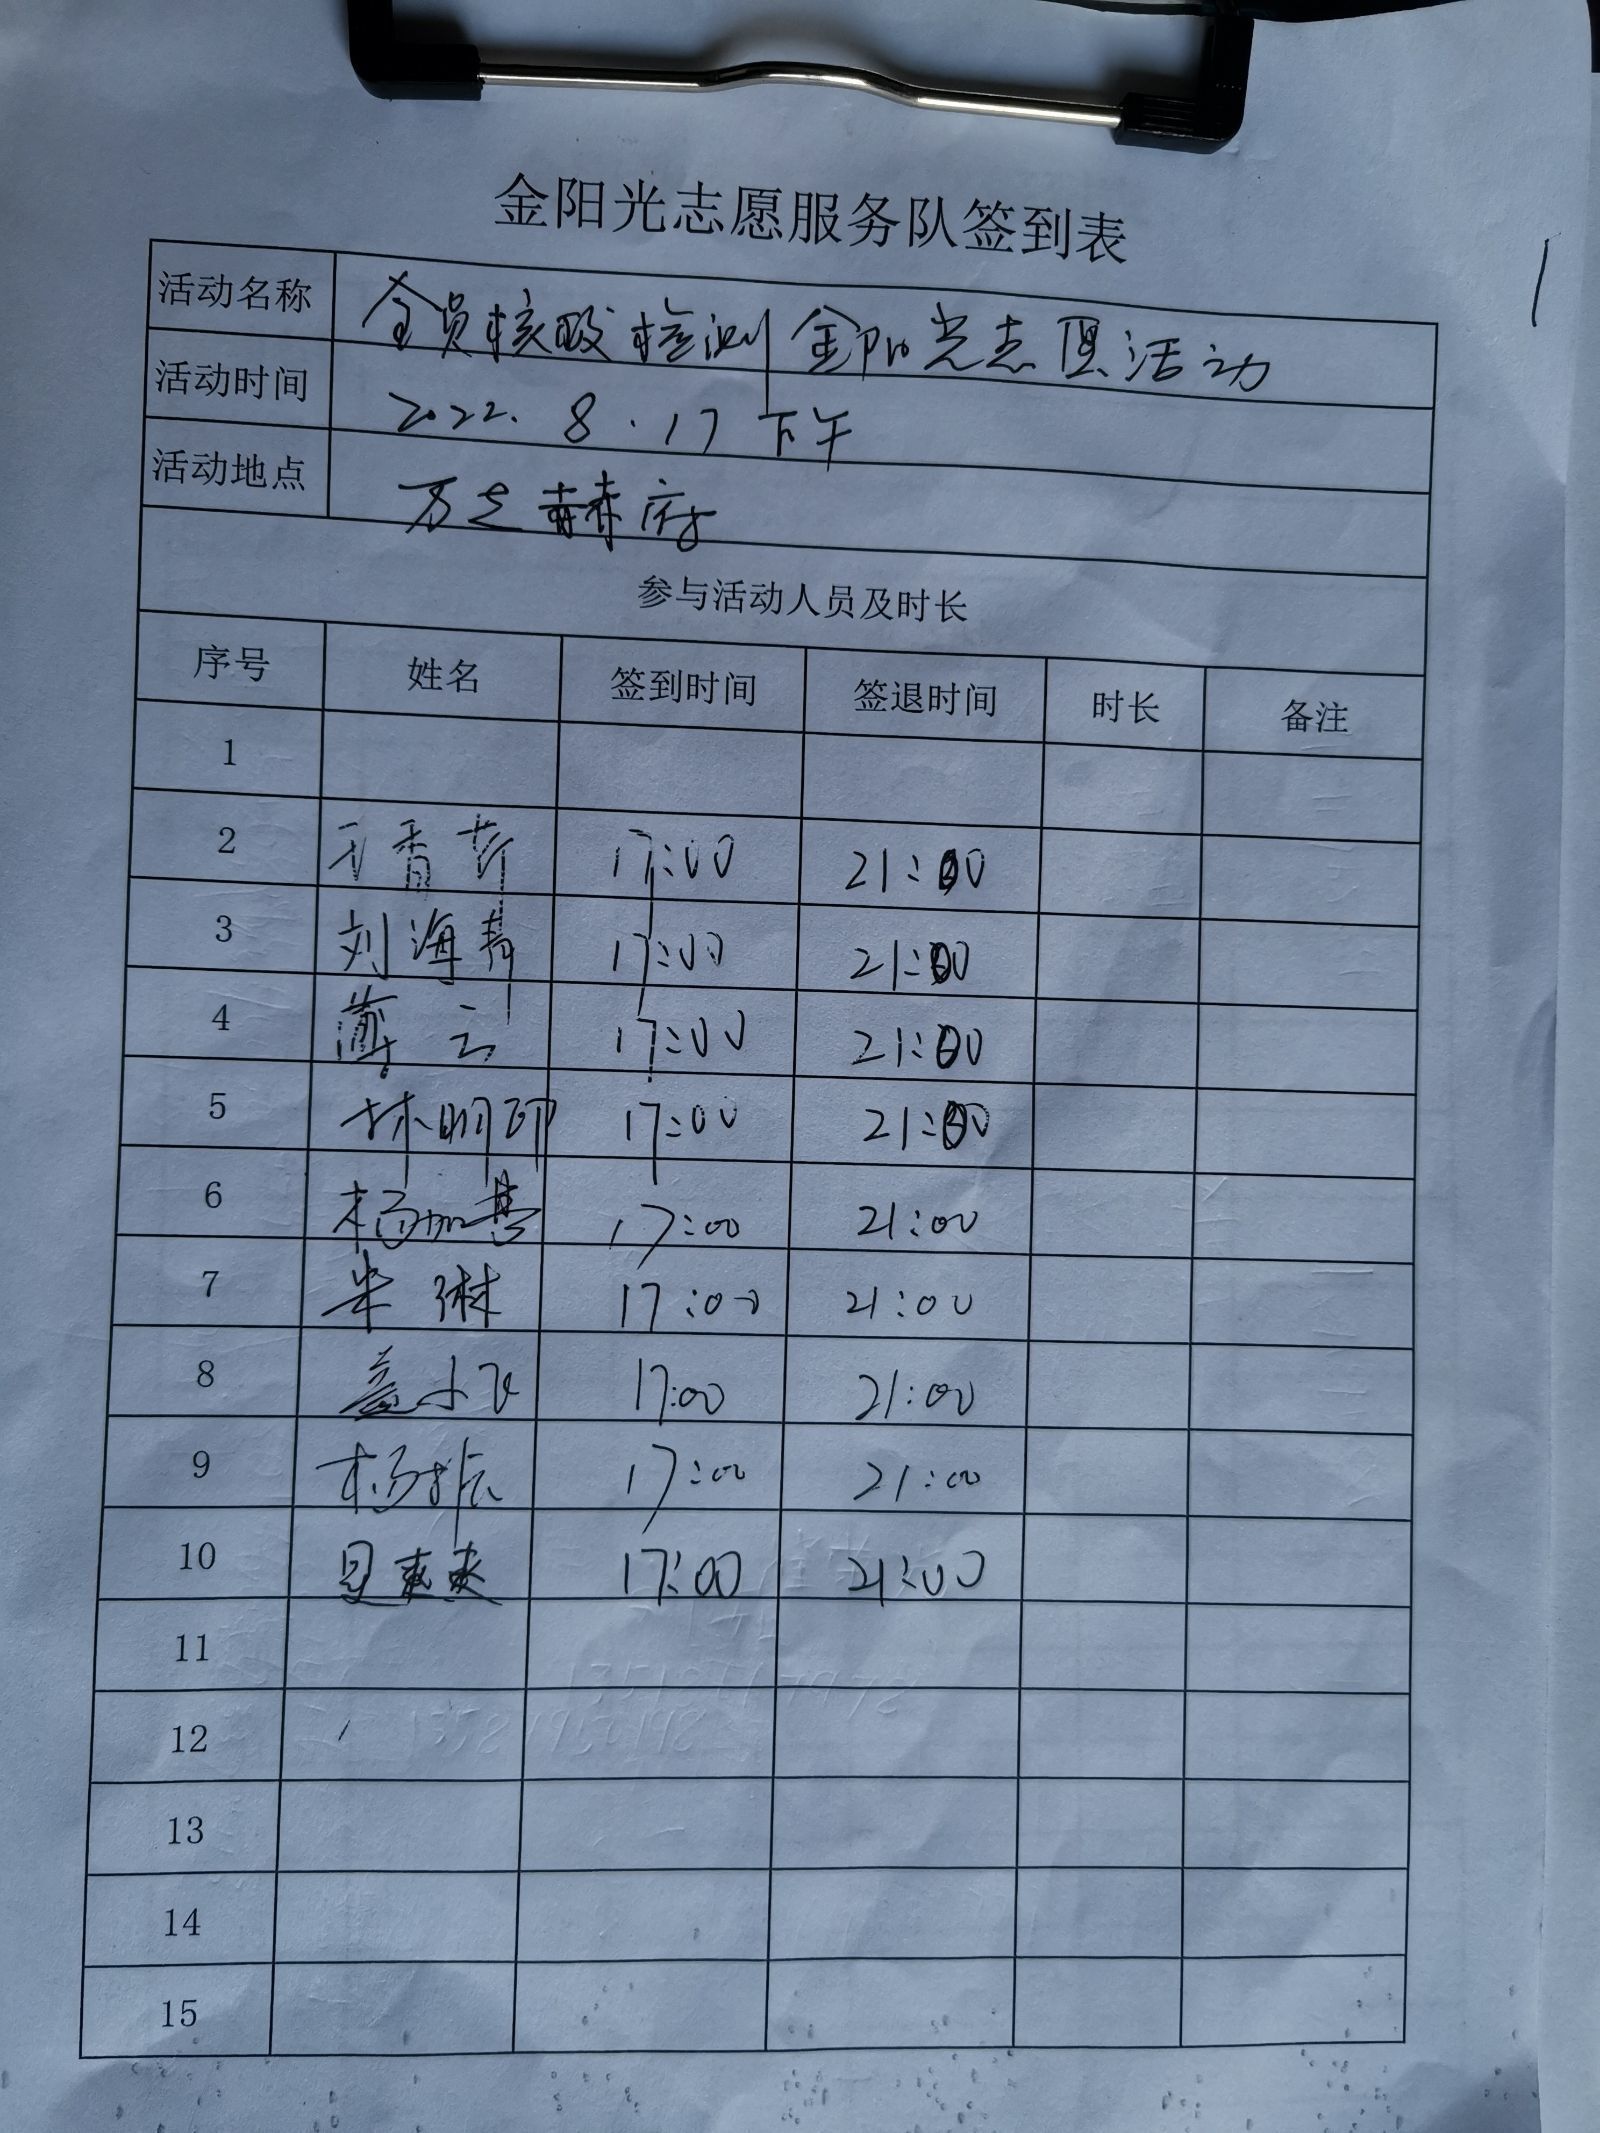 金阳光志愿服务队签到表
活动名称 全员核酸检测金阳光志愿活动
活动时间 2022.8.17下午
活动地点 万之赫府
参与活动人员及时长
序号 姓名 签到时间 签退时间 时长 备注
1
2 17:00 21:00
3 刘海青 17:00 21:00
4 薄云 17:00 21:00
5 林明印 17:00 21:00
6 杨加慧 17:00 21:00
7 朱琳 17:00 21:00
8 盖小飞 17:00 21:00
9 杨振 17:00 21:00
10 爽爽 17:00 21:00
11
12
13
14
15